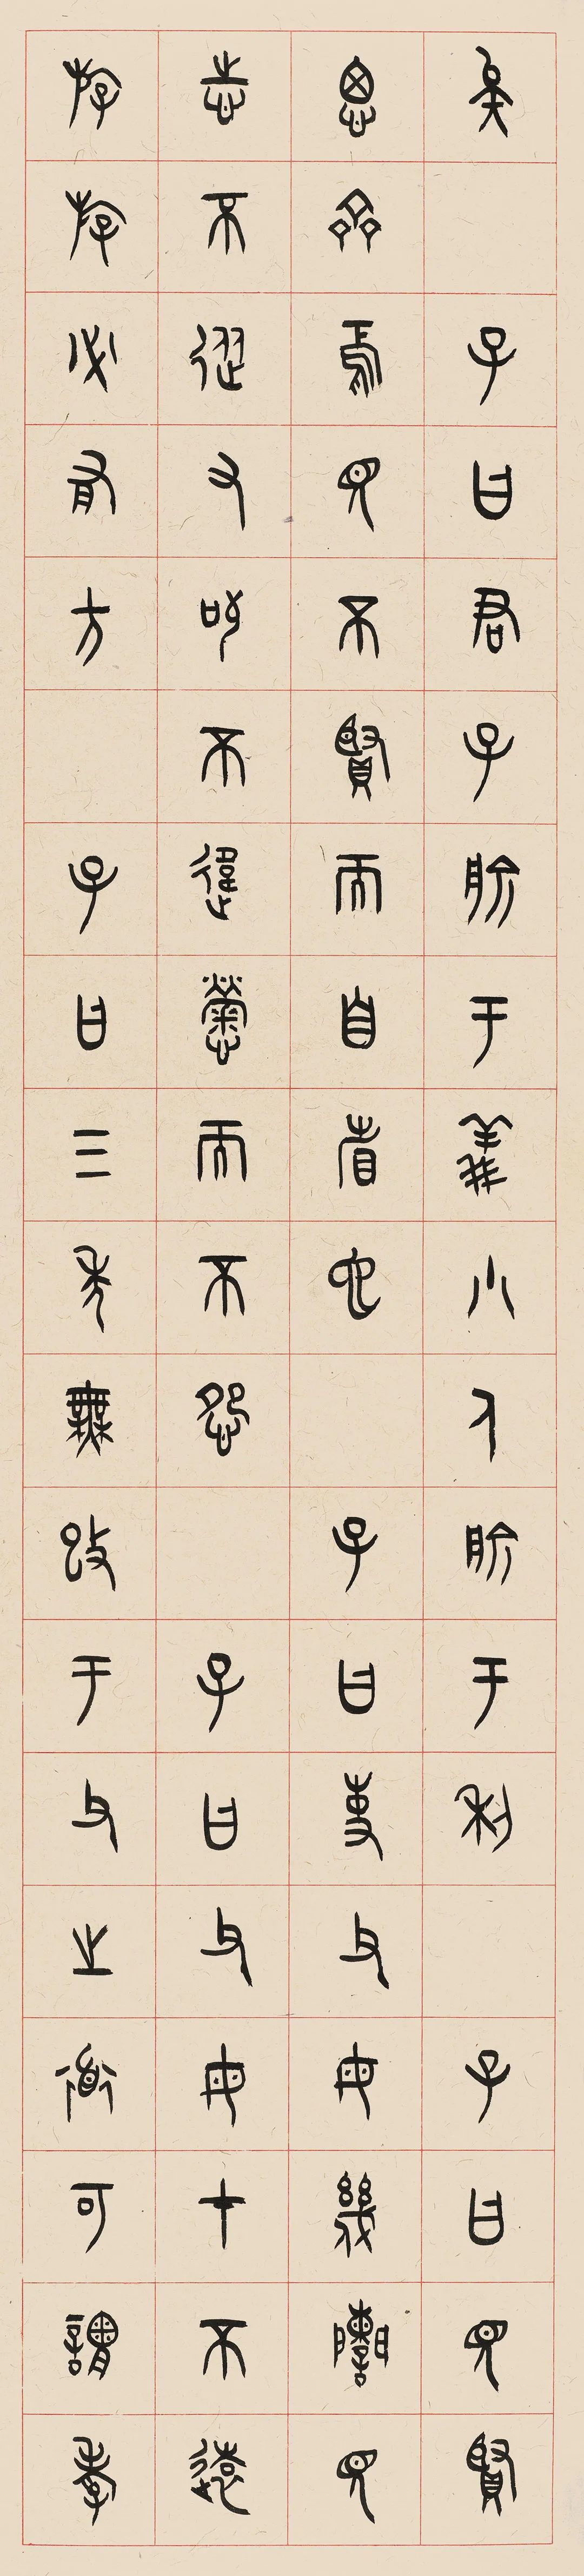 矣　子曰君子喻于義小人喻于利　子曰見賢
思齊焉見不賢而自省也　子曰事父母幾諫見
志不從又敬不違勞而不怨　子曰父母在不遠
游游必有方　子曰三年無改于父之道可謂孝